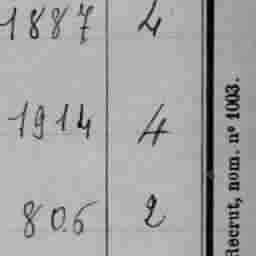 1887 4
1914 4
806 2
Recrut, nom. nº 1003.